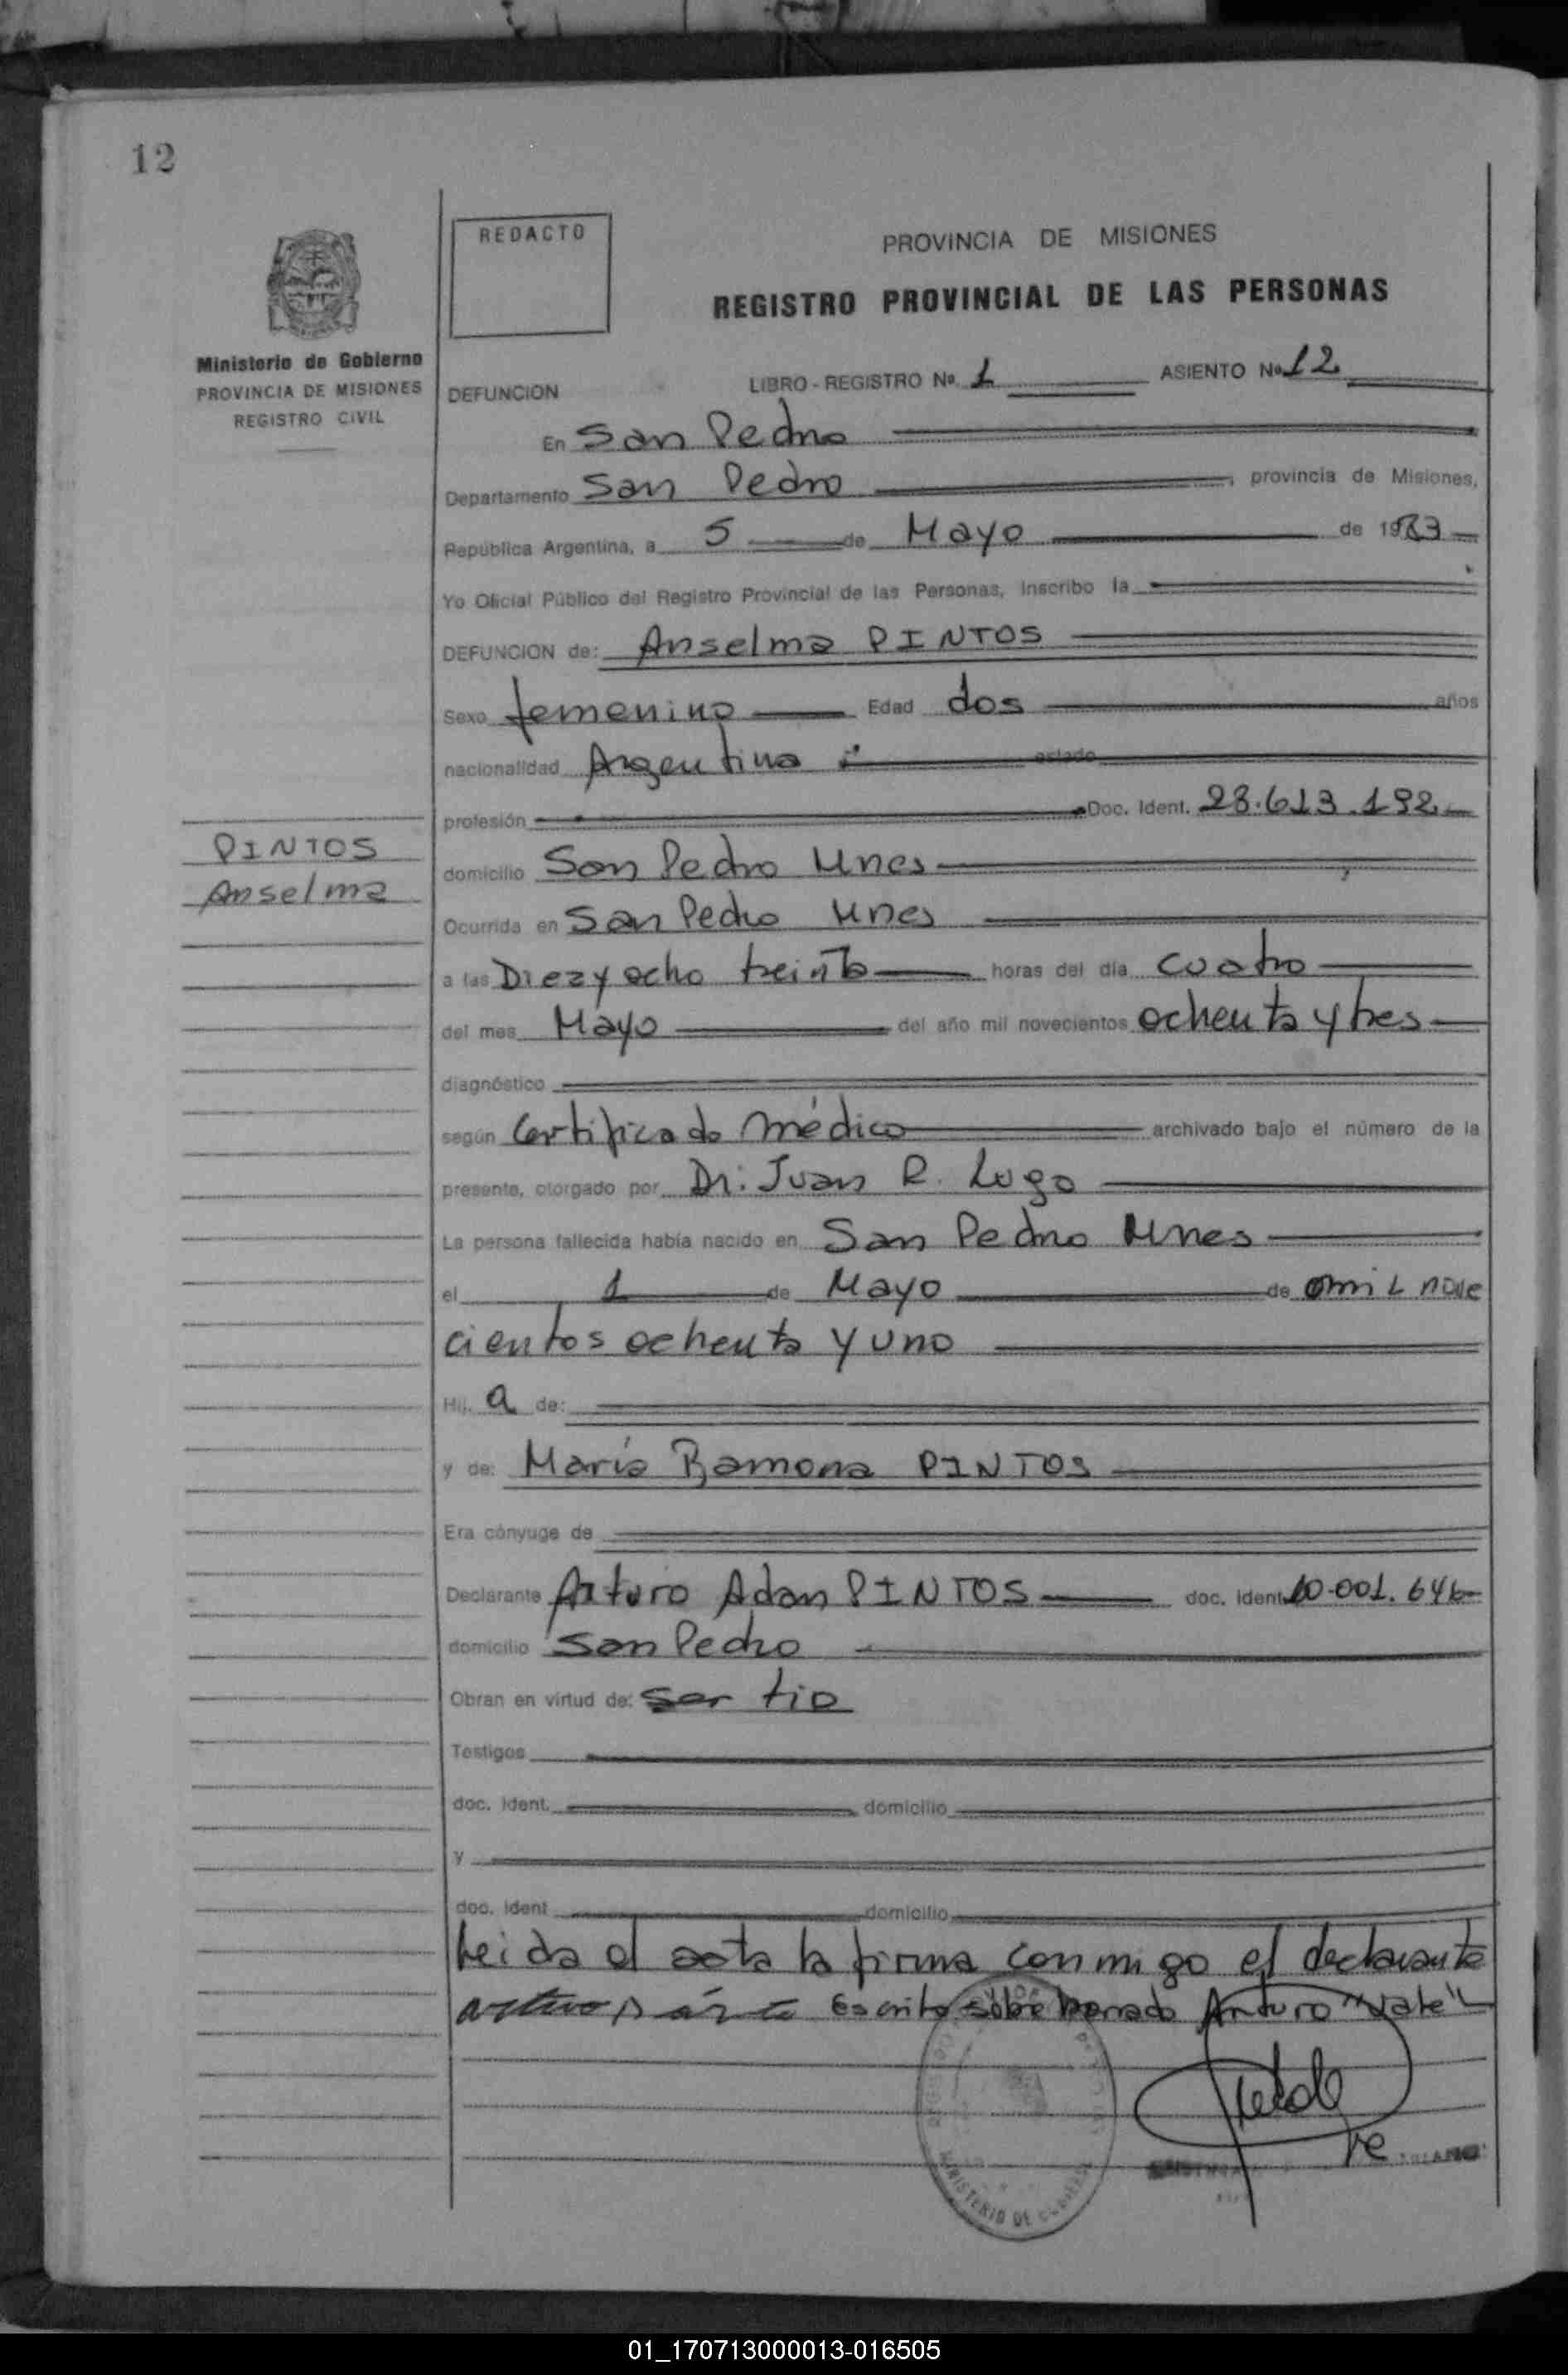 12
REDACTO
PROVINCIA DE MISIONES
REGISTRO PROVINCIAL DE LAS PERSONAS
Ministerio de Gobierno
PROVINCIA DE MISIONES
REGISTRO CIVIL
DEFUNCION LIBRO - REGISTRO No 1 ASIENTO No 12
En San Pedro
Departamento San Pedro, provincia de Misiones,
República Argentina, a 5 de Mayo de 1983
Yo Oficial Público del Registro Provincial de las Personas, inscribo la
DEFUNCION de: Anselma PINTOS
Sexo femenino Edad dos años
nacionalidad Argentina estado
profesión Doc. Ident. 28.613.192
PINTOS
Anselma
domicilio San Pedro Mnes
Ocurrida en San Pedro Mnes
a las Diez y ocho treinta horas del día cuatro
del mes Mayo del año mil novecientos ochenta y tres
diagnóstico
según Certificado médico archivado bajo el número de la
presente, otorgado por Dr: Juan R. Lugo
La persona fallecida había nacido en San Pedro Mnes
el 1 de Mayo de mil nove
cientos ochenta y uno
Hij a de:
y de: María Ramona PINTOS
Era cónyuge de
Declarante Arturo Adan PINTOS doc. Ident 10.001.646
domicilio San Pedro
Obran en virtud de: ser tio
Testigos
doc. Ident. domicilio
y
doc. Ident domicilio
Leida el acta la firma conmigo el declarante
Escrito sobre borrado Arturo "Vale"
MINISTERIO DE GOBIERNO
01_170713000013-016505